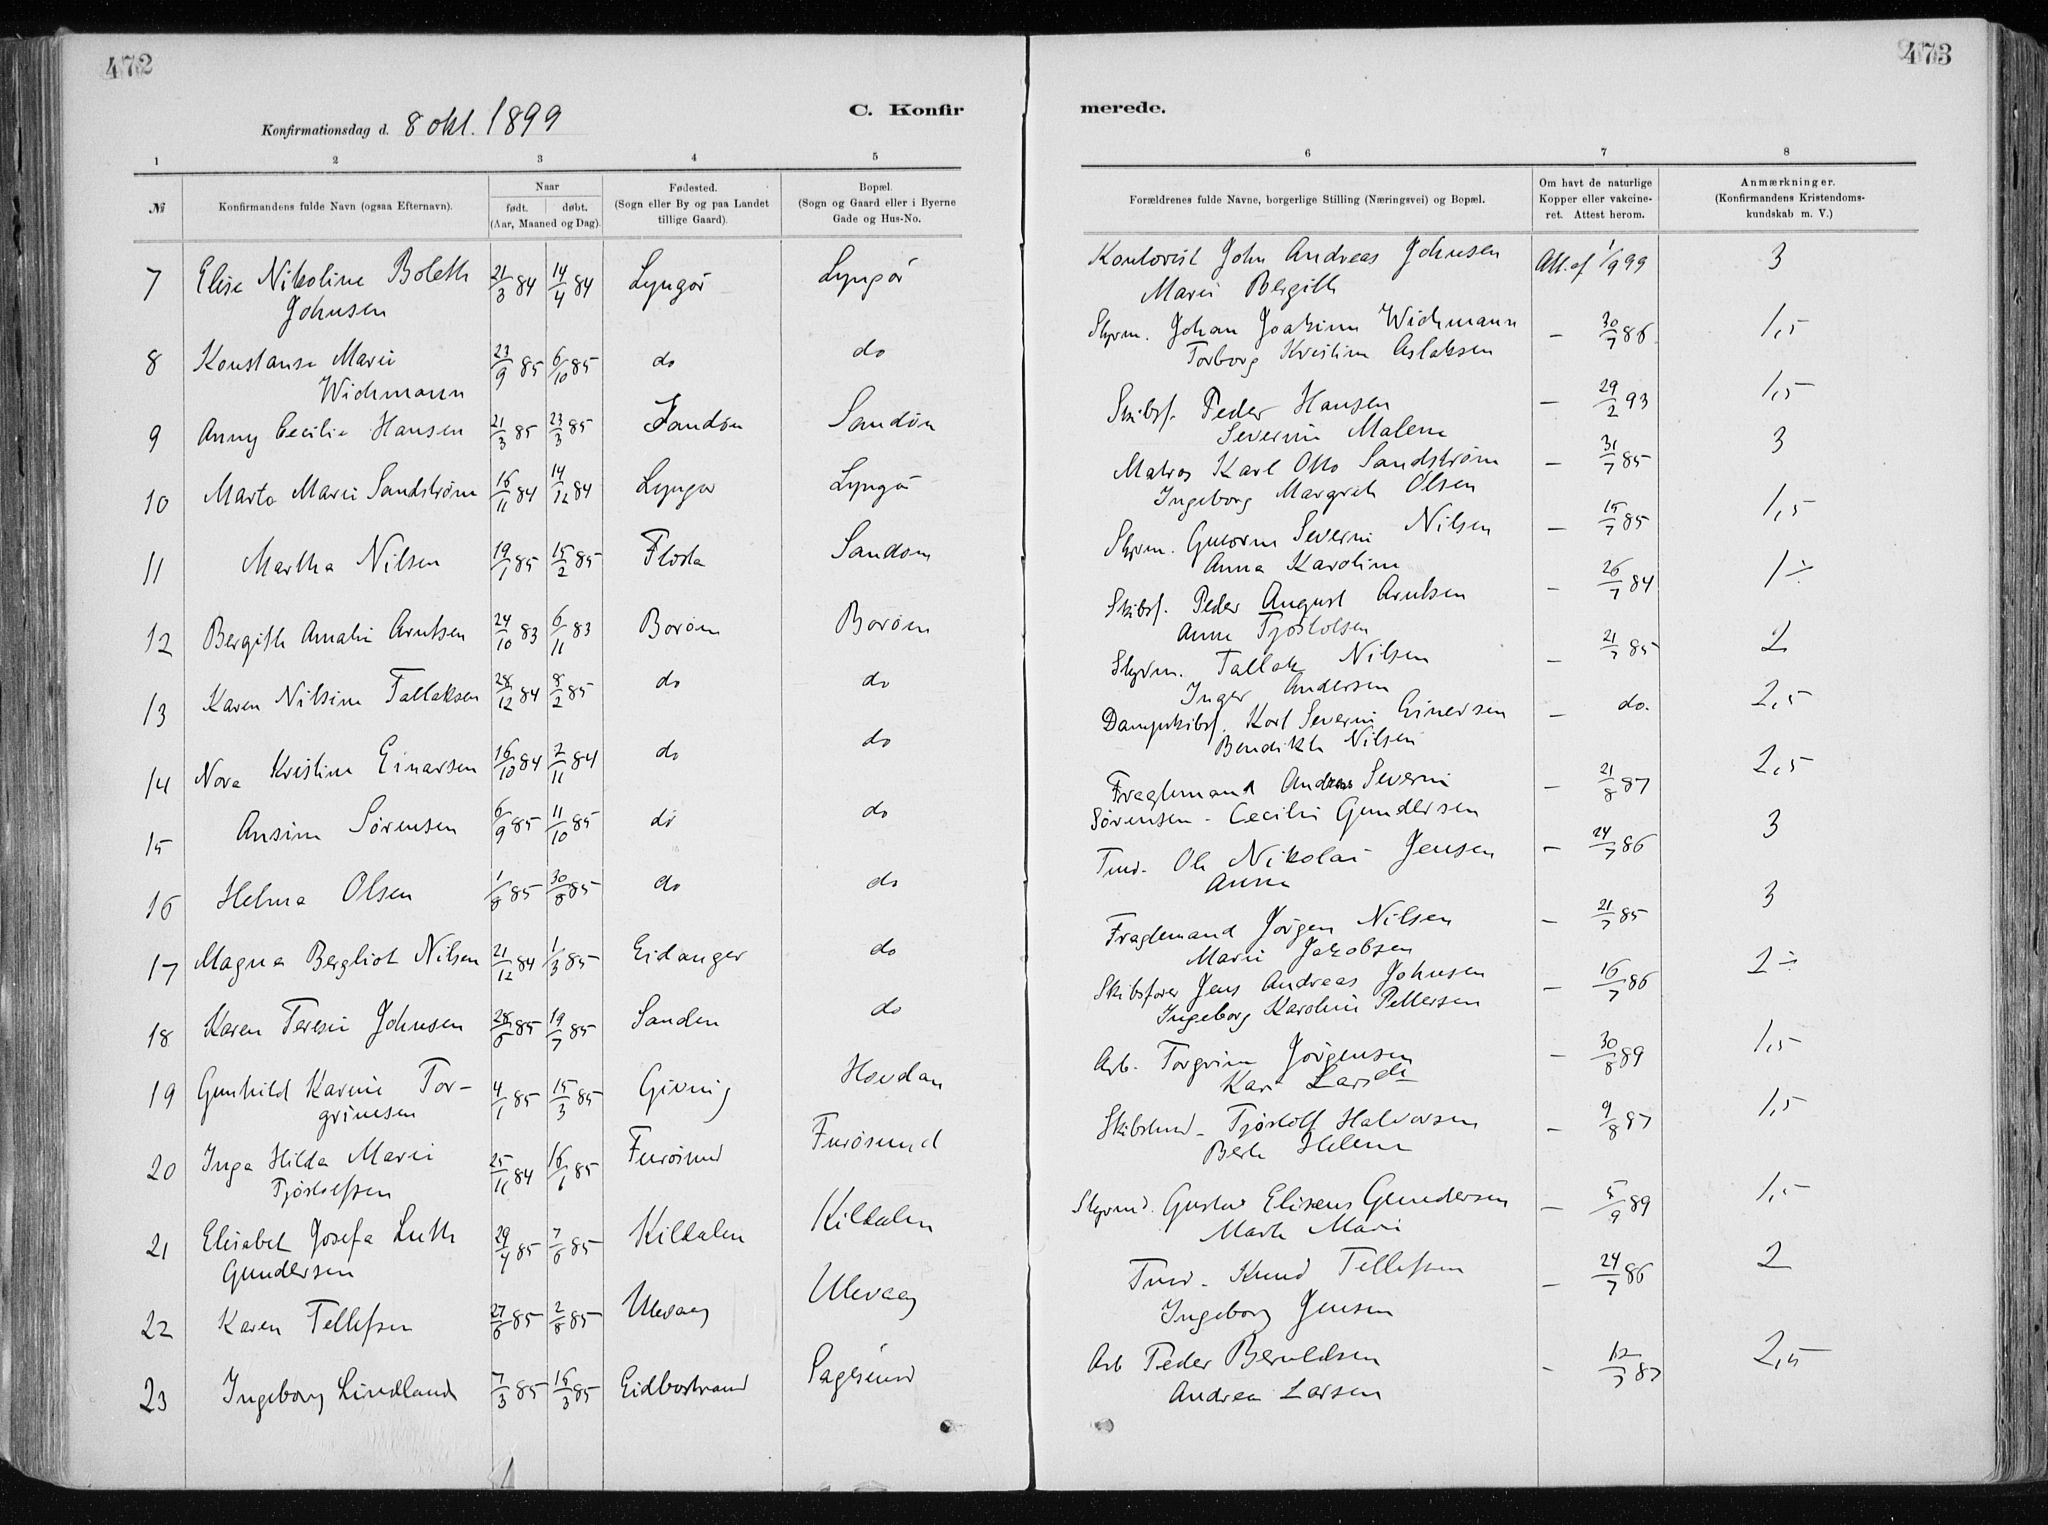 472
473
Konfirmationsdag d. 8 okt. 1899
C. Konfir
merede.
1 2 3 4 5
6 7 8
№
Konfirmandens fulde Navn (ogsaa Efternavn).
Naar
født. døbt.
(Aar, Maaned og Dag).
Fødested.
(Sogn eller By og paa Landet
tillige Gaard).
Bopæl.
(Sogn og Gaard eller i Byerne
Gade og Hus-No.
Forældrenes fulde Navne, borgerlige Stilling (Næringsvei) og Bopæl.
Om havt de naturlige
Kopper eller vakcine-
ret. Attest herom.
Anmærkninger.
(Konfirmandens Kristendoms-
kundskab m. V.)
7 Elise Nikoline Boleth 21/3 84 14/4 84 Lyngør Lyngør
Johnsen
John Andreas Johnsen Att. af 1/9 99 3
Marie Bergith
8 Konstanse Marie 23/9 85 6/10 85 do do
Wichmann
Styrm. Johan Joakim Wichmann – 30/7 86 1,5
Torborg Kristine Aslaksen
9 Anny Cecilie Hansen 21/3 85 23/3 85 Sandøen Sandøen
Skibsf. Peder Hansen – 29/2 93 1,5
Severine Malene
10 Marta Marie Sandstrøm 16/11 84 14/12 84 Lyngør Lyngør
Matros Karl Otto Sandstrøm – 31/7 85 3
Ingeborg Margreth Olsen
11 Martha Nilsen 19/1 85 15/2 85 Flosta Sandøen
Styrm. Guttorm Severin Nilsen – 15/7 85 1,5
Anna Karoline
12 Bergith Amalie Arntsen 24/10 83 6/11 83 Borøen Borøen
Skibsf. Peder August Arntsen – 26/7 84 1 ÷
Anne Tjøstolsen
13 Karen Nilsine Tallaksen 28/12 84 8/2 85 do do
Styrm. Tallak Nilsen – 21/7 85 2
Inger Andersen
14 Nora Kristine Einarsen 16/10 84 2/11 84 do do
Dampskibsf. Karl Severin Einersen – do. 2,5
Bendikte Nilsen
15 Ansine Sørensen 6/9 85 11/10 85 do do
Fragtemand Andreas Severin – 21/8 87 2,5
Sørensen - Cecilie Gundersen
16 Helma Olsen 1/8 85 30/8 85 do do
Tmd. Ole Nikolai Jensen – 24/7 86 3
Anna
17 Magna Bergliot Nilsen 21/12 84 1/3 85 Eidanger do
Fragtemand Jørgen Nilsen – 21/7 85 3
Marie Jakobsen
18 Karen Teresie Johnsen 28/6 85 19/7 85 Sanden do
Skibsfører Jens Andreas Johnsen – 16/7 86 2 ÷
Ingeborg Karoline Pettersen
19 Gunhild Karine Tor- 4/1 85 15/3 85 Giving Hovdan
grimsen
Arb. Torgrim Jørgensen – 30/8 89 1,5
Kari Larsdt
20 Inga Hilda Marie 25/11 84 16/1 85 Furøsund Furøsund
Tjøstolfsen
Tjøstolf Halvorsen – 9/8 87 1,5
Berte Helene
21 Elisabet Josefa Luth 29/4 85 7/6 85 Kildalen Kildalen
Gundersen
Styrmd. Gustav Eliseus Gundersen – 5/9 89 1,5
Marte Marie
22 Karen Tellefsen 27/6 85 2/8 85 Ulevaag Ulevaag
Tmd. Knud Tellefsen – 24/7 86 2
Ingeborg Jensen
23 Ingeborg Lindland 7/3 85 15/3 85 Eidbostrand Sagesund
Arb Peder Beruldsen – 12/7 87 2,5
Andrea Larsen